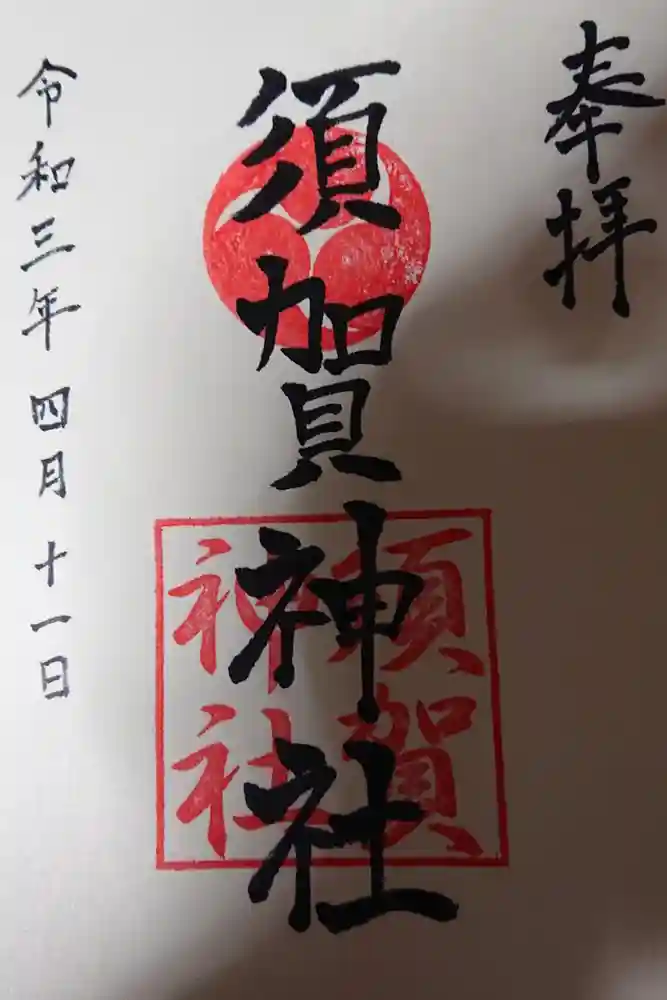 奉拝
須賀神社
須賀
神社
令和三年四月十一日